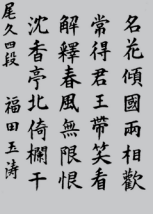 名花傾國兩相歡
常得君王帶笑看
解釋春風無限恨
沈香亭北倚欄干
尾久四段　福田玉涛